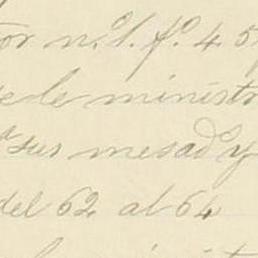 tor n.º 1. f.º 45
se le ministr
ª sus mesad.ˢ y
del 62 al 64